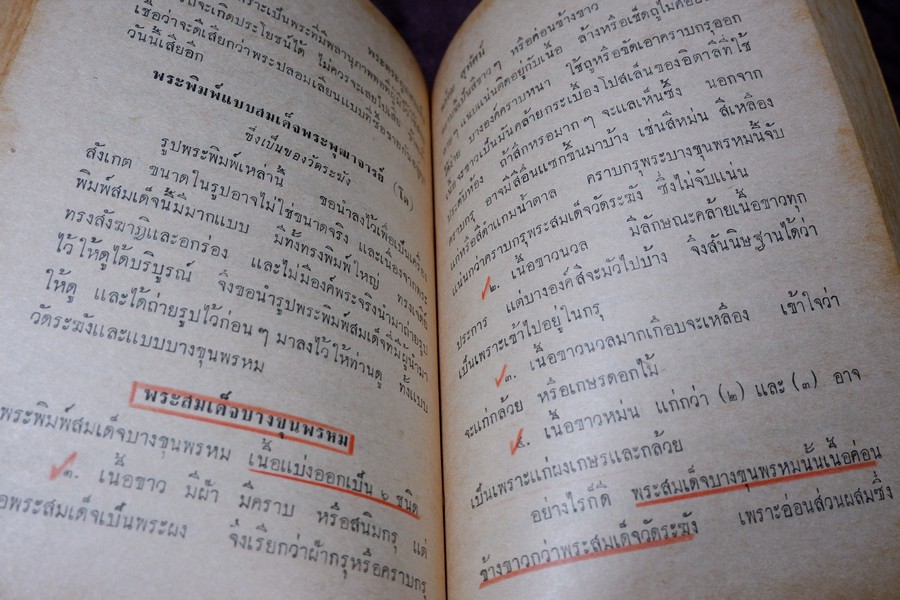 เพราะเป็นพระพิมพ์พลานุภาพ
จะเกิดประโยชน์ได้ ไม่ควรจะเลยไปเสีย
เชื่อว่าจะดีเสียกว่าพระปลอมเลียนแบบที่ซื้อ
วันนี้เสียอีก
พระพิมพ์แบบสมเด็จพระพุฒาจารย์ (โต)
ซึ่งเป็นของวัดระฆัง
รูปพระพิมพ์เหล่านี้ ขอนำลงไว้เพื่อเป็นเครื่อง
สังเกต ขนาดในรูปอาจไม่ใช่ขนาดจริง และเนื่องจากพระ
พิมพ์สมเด็จนี้มีมากแบบ มีทั้งทรงพิมพ์ใหญ่ ทรงเจดีย์
ทรงสังฆาฏิและอกร่อง และไม่มีองค์พระจริงนำมาถ่ายรูป
ไว้ให้ดูได้บริบูรณ์ จึงขอนำรูปพระพิมพ์สมเด็จที่มีผู้นำมา
ให้ดู และได้ถ่ายรูปไว้ก่อนๆ มาลงไว้ให้ท่านดู ทั้งแบบ
วัดระฆังและแบบบางขุนพรหม
พระสมเด็จบางขุนพรหม
พระพิมพ์สมเด็จบางขุนพรหม เนื้อแบ่งออกเป็น ๖ ชนิด
๑. เนื้อขาว มีฝ้า มีคราบ หรือสนิมกรุ แต่
พระสมเด็จเป็นพระผง จึ่งเรียกว่าฝ้ากรุหรือคราบกรุ
เป็นสีขาวๆ หรือค่อนข้างขาว
ๆ แนบแน่นติดอยู่กับเนื้อ ล้างหรือเช็ดถูไม่ค่อย
บางองค์คราบหนา ใช้ถูหรือขัดเอาคราบกรุออก
เนื้อจะขาวเป็นมันคล้ายกระเบื้องโปสเล็นของอิตาลีที่ใช้
ประดับห้อง ถ้าสึกหรอมากๆ จะแลเห็นซึ้ง นอกจาก
คราบกรุ อาจมีสีอื่นแซกขึ้นมาบ้าง เช่นสีหม่น สีเหลือง
แก่หรือสีดำแกมน้ำตาล คราบกรุพระบางขุนพรหมนี้จับ
แน่นกว่าคราบกรุพระสมเด็จวัดระฆัง ซึ่งไม่จับแน่น
๒. เนื้อขาวนวล มีลักษณะคล้ายเนื้อขาวทุก
ประการ แต่บางองค์สีจะมัวไปบ้าง จึงสันนิษฐานได้ว่า
เป็นเพราะเข้าไปอยู่ในกรุ
๓. เนื้อขาวนวลมากเกือบจะเหลือง เข้าใจว่า
จะแก่กล้วย หรือเกษรดอกไม้
๔. เนื้อขาวหม่น แก่กว่า (๒) และ (๓) อาจ
เป็นเพราะแก่ผงเกษรและกล้วย
อย่างไรก็ดี พระสมเด็จบางขุนพรหมนั้นเนื้อค่อน
ข้างขาวกว่าพระสมเด็จวัดระฆัง เพราะอ่อนส่วนผสมซึ่ง